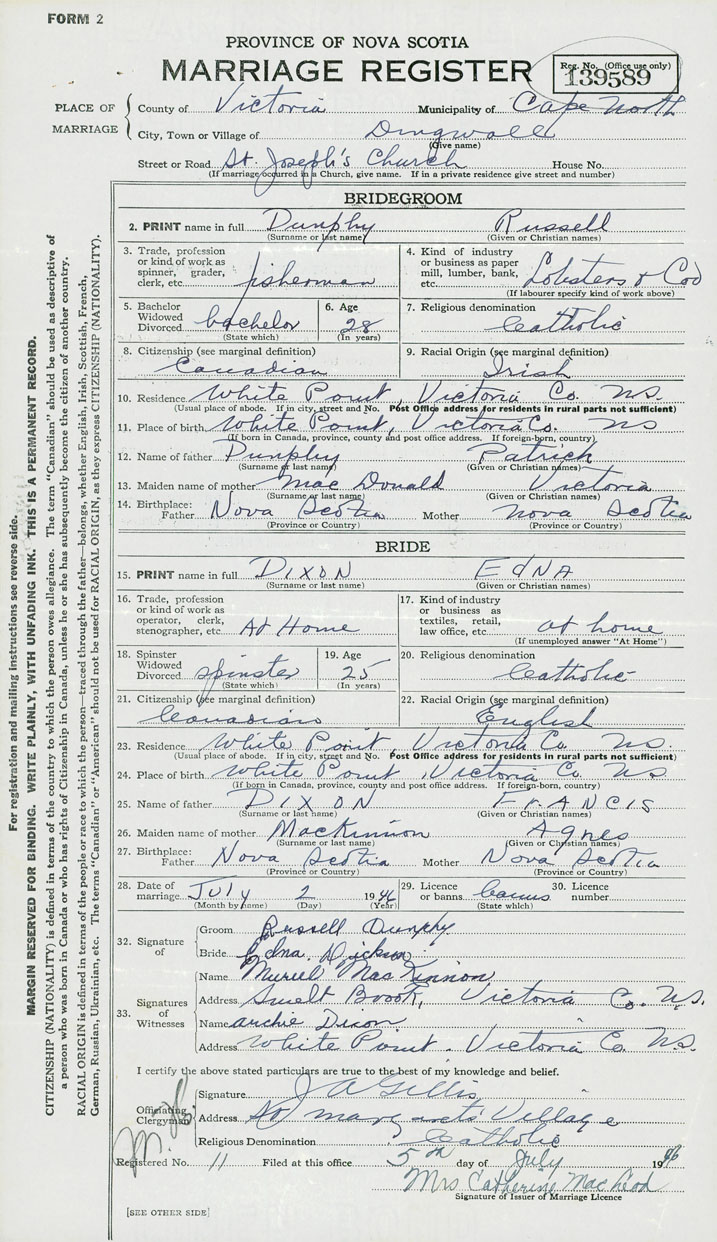 FORM 2
PROVINCE OF NOVA SCOTIA
MARRIAGE REGISTER
Reg. No. (Office use only)
139589
PLACE OF MARRIAGE
County of Victoria Municipality of Cape North
City, Town or Village of Dingwall
(Give name)
Street or Road St. Joseph's Church House No.
(If marriage occurred in a Church, give name. If in a private residence give street and number)
BRIDEGROOM
2. PRINT name in full Dunphy Russell
(Surname or last name) (Given or Christian names)
3. Trade, profession or kind of work as spinner, grader, clerk, etc. fisherman
4. Kind of industry or business as paper mill, lumber, bank, etc. Lobsters & Cod
(If labourer specify kind of work above)
5. Bachelor Widowed Divorced bachelor
(State which)
6. Age 28
(In years)
7. Religious denomination Catholic
8. Citizenship (see marginal definition) Canadian
9. Racial Origin (see marginal definition) Irish
10. Residence White Point, Victoria Co. NS.
(Usual place of abode. If in city, street and No. Post Office address for residents in rural parts not sufficient)
11. Place of birth White Point, Victoria Co. NS
(If born in Canada, province, county and post office address. If foreign-born, country)
12. Name of father Dunphy Patrick
(Surname or last name) (Given or Christian names)
13. Maiden name of mother Mac Donald Victoria
(Surname or last name) (Given or Christian names)
14. Birthplace: Father Nova Scotia Mother Nova Scotia
(Province or Country) (Province or Country)
BRIDE
15. PRINT name in full DIXON EDNA
(Surname or last name) (Given or Christian names)
16. Trade, profession or kind of work as operator, clerk, stenographer, etc. At Home
17. Kind of industry or business as textiles, retail, law office, etc. at home
(If unemployed answer "At Home")
18. Spinster Widowed Divorced spinster
(State which)
19. Age 25
(In years)
20. Religious denomination Catholic
21. Citizenship (see marginal definition) Canadian
22. Racial Origin (see marginal definition) English
23. Residence White Point Victoria Co. NS.
(Usual place of abode. If in city, street and No. Post Office address for residents in rural parts not sufficient)
24. Place of birth White Point, Victoria Co. NS.
(If born in Canada, province, county and post office address. If foreign-born, country)
25. Name of father DIXON FrANCIS
(Surname or last name) (Given or Christian names)
26. Maiden name of mother MacKinnon Agnes
(Surname or last name) (Given or Christian names)
27. Birthplace: Father Nova Scotia Mother Nova Scotia
(Province or Country) (Province or Country)
28. Date of marriage July 2 1946
(Month by name) (Day) (Year)
29. Licence or banns banns
(State which)
30. Licence number
32. Signature of
Groom Russell Dunphy
Bride Edna Dickson
33. Signatures of Witnesses
Name Muriel MacKinnon
Address Smelt Brook, Victoria Co. NS.
Name archie Dixon
Address White Point. Victoria Co NS.
I certify the above stated particulars are true to the best of my knowledge and belief.
Officiating Clergyman
Signature J A Gillis
Address St margarets Village
Religious Denomination Catholic
Registered No. 11 Filed at this office 5th day of July 1946
Mrs Catherine Mac Leod
Signature of Issuer of Marriage Licence
[SEE OTHER SIDE]
For registration and mailing instructions see reverse side.
MARGIN RESERVED FOR BINDING. WRITE PLAINLY, WITH UNFADING INK. THIS IS A PERMANENT RECORD.
CITIZENSHIP (NATIONALITY) is defined in terms of the country to which the person owes allegiance. The term "Canadian" should be used as descriptive of
a person who was born in Canada or who has rights of Citizenship in Canada, unless he or she has subsequently become the citizen of another country.
RACIAL ORIGIN is defined in terms of the people or race to which the person—traced through the father—belongs, whether English, Irish, Scottish, French,
German, Russian, Ukrainian, etc. The terms "Canadian" or "American" should not be used for RACIAL ORIGIN, as they express CITIZENSHIP (NATIONALITY).